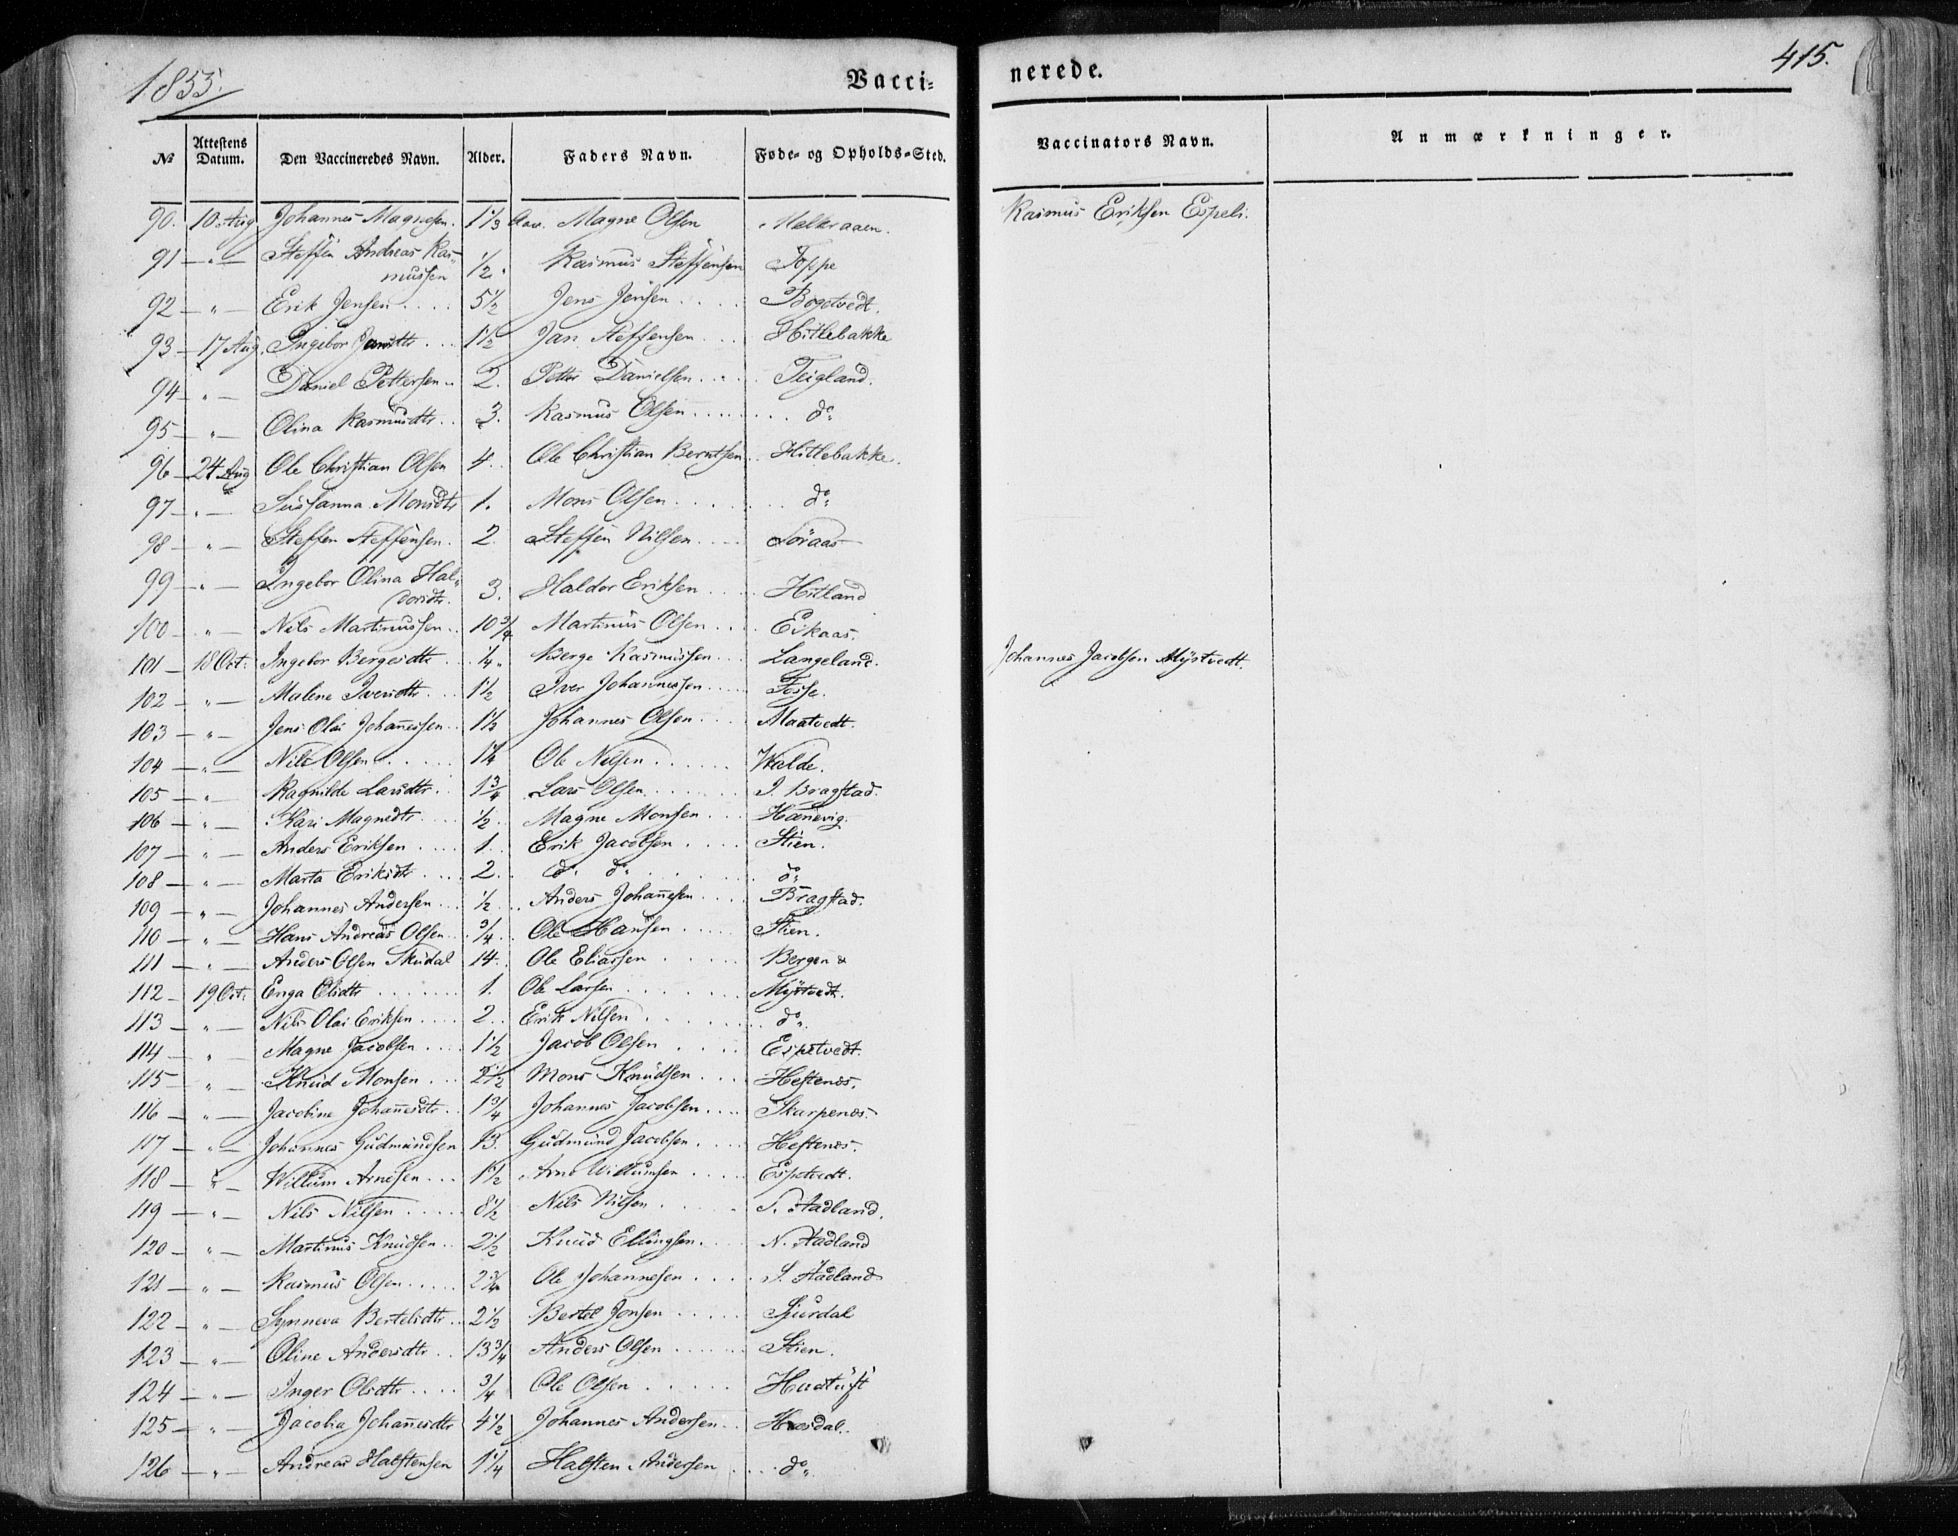 1855.
Vacci-
nerede.
415.
No
Attestens Datum.
Den Vaccineredes Navn.
Alder.
Faders Navn.
Føde- og Opholds-Sted.
Vaccinators Navn.
Anmærkninger.
90. 10 Aug Johannes Magnesen. 1 1/3 Aar. Magne Olsen Melkraaen. Rasmus Eriksen Espeli.
91 — " — Steffen Andreas Ras-
mussen 1/2. Rasmus Steffensen Toppe
92 — " — Erik Jensen 5 1/2 Jens Jensen Bogetvedt.
93 — 17 Aug. Ingebor Jansdtr 1 1/2 Jan Steffensen Hitlebakke
94 " — Daniel Pettersen 2. Petter Danielsen Teigland.
95 — " — Olina Rasmusdtr 3. Rasmus Olsen do
96 — 24 Aug Ole Christian Olsen 4 Ole Christian Berntsen Hitlebakke.
97 — " — Susanna Monsdtr 1. Mons Olsen do
98 — " — Steffen Steffensen 2 Steffen Nilsen Søraas
99 — " — Ingebor Olina Hal-
dorsdtr. 3. Haldor Eriksen Hitland
100 — " — Nils Martinussen 10 3/4 Martinus Olsen Eikaas.
101 — 18 Oct. Ingebor Bergesdtr 1/4 Berge Rasmussen Langeland. Johannes Jacobsen Mÿstvedt.
102 — " — Malene Iversdtr 1 1/2 Iver Johannessen Fosse.
103 — " — Jens Olai Johannessen 1 1/2 Johannes Olsen Maatvedt.
104 — " — Nils Olsen 1 1/4 Ole Nilsen Walde.
105 — " — Ragnilde Larsdtr 1 3/4 Lars Olsen I. Bragstad.
106 — " — Kari Magnedtr 1/2 Magne Monsen Hanevig.
107 — " — Anders Eriksen 1. Erik Jacobsen Stien.
108 — " — Marta Eriksdtr 2. do do do
109 — " — Johannes Andersen 1/2 Anders Johannesen Bragstad.
110 — " — Hans Andreas Olsen 3/4 Ole Hansen Stien.
111 — " — Anders Olsen Skudal 14 Ole Eliassen Bergen
112 — 19 Oct. Enga Olsdtr 1. Ole Larsen Mÿstvedt.
113 — " — Nils Olai Eriksen 2 Erik Nilsen do
114 — " Magne Jacobsen 1 1/2 Jacob Olsen Espetvedt.
115 — " — Knud Monsen 2 1/2 Mons Knudsen Heftenes.
116 — " — Jacobine Johannesdtr 1 3/4 Johannes Jacobsen Skarpenes.
117 — " — Johannes Gudmundsen 13. Gudmund Jacobsen Heftenes.
118 — " — Willum Arnesen 1 1/2 Arne Willumsen Espetvedt.
119 — " — Nils Nilsen 8 1/2 Nils Nilsen S. Aadland.
120 — " — Martinus Knudsen 2 1/2 Knud Ellingsen N. Aadland
121 — " — Rasmus Olsen 2 3/4 Ole Johannesen S. Aadland
122 — " — Synneva Bertelsdtr 2 1/2 Bertel Jonsen Sjurdal
123 — " — Oline Andersdtr 13 3/4 Anders Olsen Stien.
124 — " — Inger Olsdtr 3/4 Ole Olsen
125 — " — Jacoba Johannesdtr 4 1/2 Johannes Andersen Hæsdal.
126 — " — Andreas Halstensen 1 1/4 Halsten Andersen do